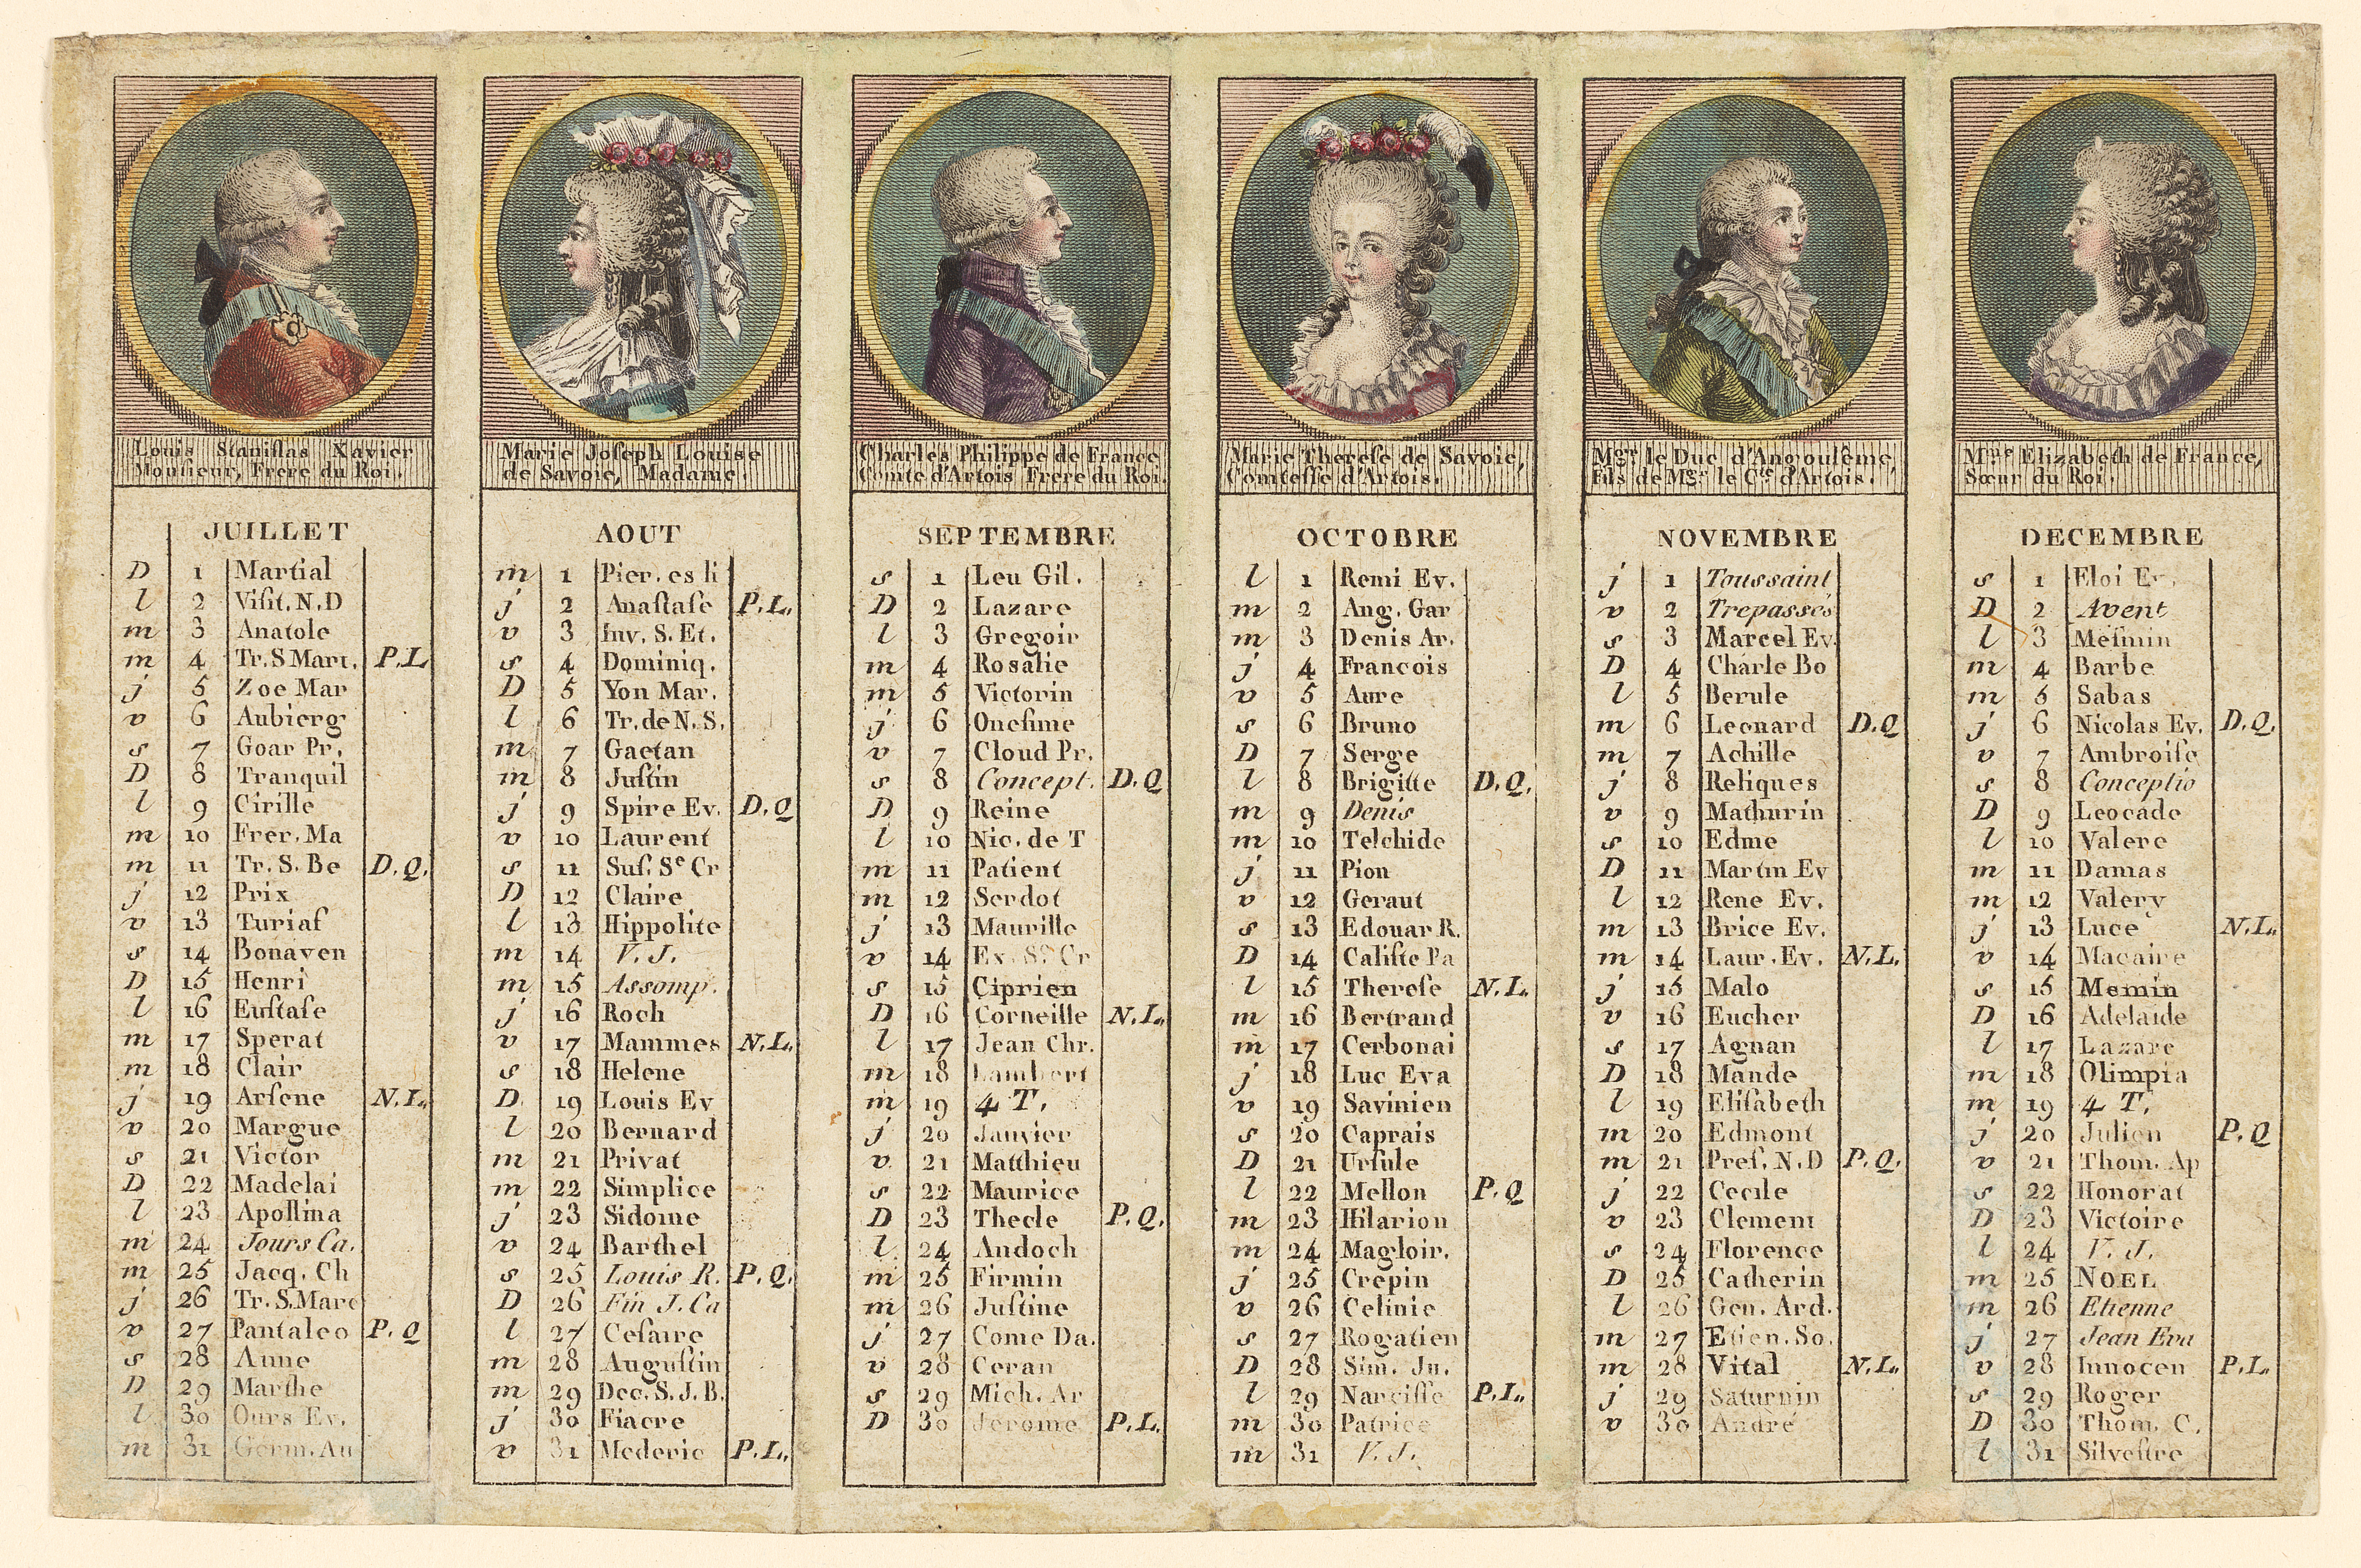 Louis Staniſlas Xavier
Monſieur, Frere du Roi.
JUILLET
D 1 Martial
l 2 Viſit. N. D
m 3 Anatole
m 4 Tr. S Mart. P.L
j 5 Zoe Mar
v 6 Aubierg
s 7 Goar Pr.
D 8 Tranquil
l 9 Cirille
m 10 Frer. Ma
m 11 Tr. S. Be D.Q.
j 12 Prix
v 13 Turiaf
s 14 Bonaven
D 15 Henri
l 16 Euſtaſe
m 17 Sperat
m 18 Clair
j 19 Arſene N.L.
v 20 Margue
s 21 Victor
D 22 Madelai
l 23 Apollina
m 24 Jours Ca.
m 25 Jacq. Ch
j 26 Tr. S. Marc
v 27 Pantaleo P.Q
s 28 Anne
D 29 Marthe
l 30 Ours Ev.
m 31 Germ. Au
Marie Joſeph Louise
de Savoie, Madame.
AOUT
m 1 Pier. es li
j 2 Anaſtaſe P.L.
v 3 Inv. S. Et.
s 4 Dominiq.
D 5 Yon Mar.
l 6 Tr. de N. S.
m 7 Gaetan
m 8 Juſtin
j 9 Spire Ev. D.Q
v 10 Laurent
s 11 Suſ. Sᵉ Cr
D 12 Claire
l 13 Hippolite
m 14 V. J.
m 15 Assomp.
j 16 Roch
v 17 Mammes N.L.
s 18 Helene
D 19 Louis Ev
l 20 Bernard
m 21 Privat
m 22 Simplice
j 23 Sidoine
v 24 Barthel
s 25 Louis R. P.Q.
D 26 Fin J. Ca
l 27 Ceſaire
m 28 Auguſtin
m 29 Dec. S. J. B.
j 30 Fiacre
v 31 Mederic P.L.
Charles Philippe de France
Comte d'Artois Frere du Roi.
SEPTEMBRE
s 1 Leu Gil.
D 2 Lazare
l 3 Gregoir
m 4 Rosalie
m 5 Victorin
j 6 Oneſime
v 7 Cloud Pr.
s 8 Concept. D.Q
D 9 Reine
l 10 Nic. de T
m 11 Patient
m 12 Serdot
j 13 Maurille
v 14 Ex. Sᵉ Cr
s 15 Ciprien
D 16 Corneille N.L.
l 17 Jean Chr.
m 18 Lambert
m 19 4 T.
j 20 Janvier
v 21 Matthieu
s 22 Maurice
D 23 Thecle P.Q.
l 24 Andoch
m 25 Firmin
m 26 Juſtine
j 27 Come Da.
v 28 Ceran
s 29 Mich. Ar
D 30 Jerome P.L.
Marie Thereſe de Savoie,
Comteſſe d'Artois.
OCTOBRE
l 1 Remi Ev.
m 2 Ang. Gar
m 3 Denis Ar.
j 4 Francois
v 5 Aure
s 6 Bruno
D 7 Serge
l 8 Brigitte D.Q.
m 9 Denis
m 10 Telchide
j 11 Pion
v 12 Geraut
s 13 Edouar R.
D 14 Caliſte Pa
l 15 Thereſe N.L.
m 16 Bertrand
m 17 Cerbonai
j 18 Luc Eva
v 19 Savinien
s 20 Caprais
D 21 Urſule
l 22 Mellon P.Q
m 23 Hilarion
m 24 Magloir.
j 25 Crepin
v 26 Celinie
s 27 Rogatien
D 28 Sim. Ju.
l 29 Narciſſe P.L.
m 30 Patrice
m 31 V. J.
Mgr. le Duc d'Angoulême,
Fils de Mgr. le Cte. d'Artois.
NOVEMBRE
j 1 Toussaint
v 2 Trepassés
s 3 Marcel Ev.
D 4 Charle Bo
l 5 Berule
m 6 Leonard D.Q
m 7 Achille
j 8 Reliques
v 9 Mathurin
s 10 Edme
D 11 Martin Ev
l 12 Rene Ev.
m 13 Brice Ev.
m 14 Laur. Ev. N.L.
j 15 Malo
v 16 Eucher
s 17 Agnan
D 18 Mande
l 19 Eliſabeth
m 20 Edmont
m 21 Preſ. N. D P.Q.
j 22 Cecile
v 23 Clement
s 24 Florence
D 25 Catherin
l 26 Gen. Ard.
m 27 Etien. So.
m 28 Vital N.L.
j 29 Saturnin
v 30 André
Mme Elizabeth de France,
Sœur du Roi.
DECEMBRE
s 1 Eloi Ev.
D 2 Avent
l 3 Meſmin
m 4 Barbe
m 5 Sabas
j 6 Nicolas Ev. D.Q.
v 7 Ambroiſe
s 8 Conceptio
D 9 Leocade
l 10 Valere
m 11 Damas
m 12 Valery
j 13 Luce N.L.
v 14 Macaire
s 15 Memin
D 16 Adelaide
l 17 Lazare
m 18 Olimpia
m 19 4 T.
j 20 Julien P.Q
v 21 Thom. Ap
s 22 Honorat
D 23 Victoire
l 24 V. J.
m 25 NOEL
m 26 Etienne
j 27 Jean Eva
v 28 Innocen P.L.
s 29 Roger
D 30 Thom. C.
l 31 Silveſtre